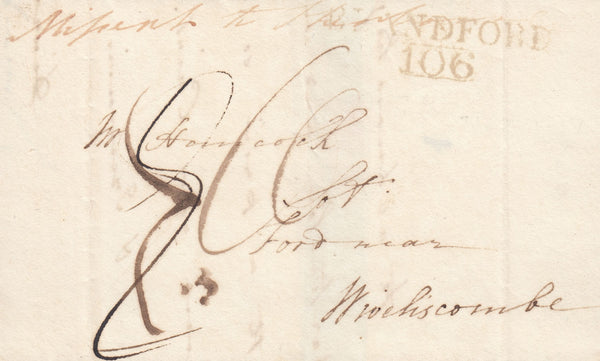 Missent to
NDFORD
106
Mr Hancock
8
Ford near
Wiveliscombe